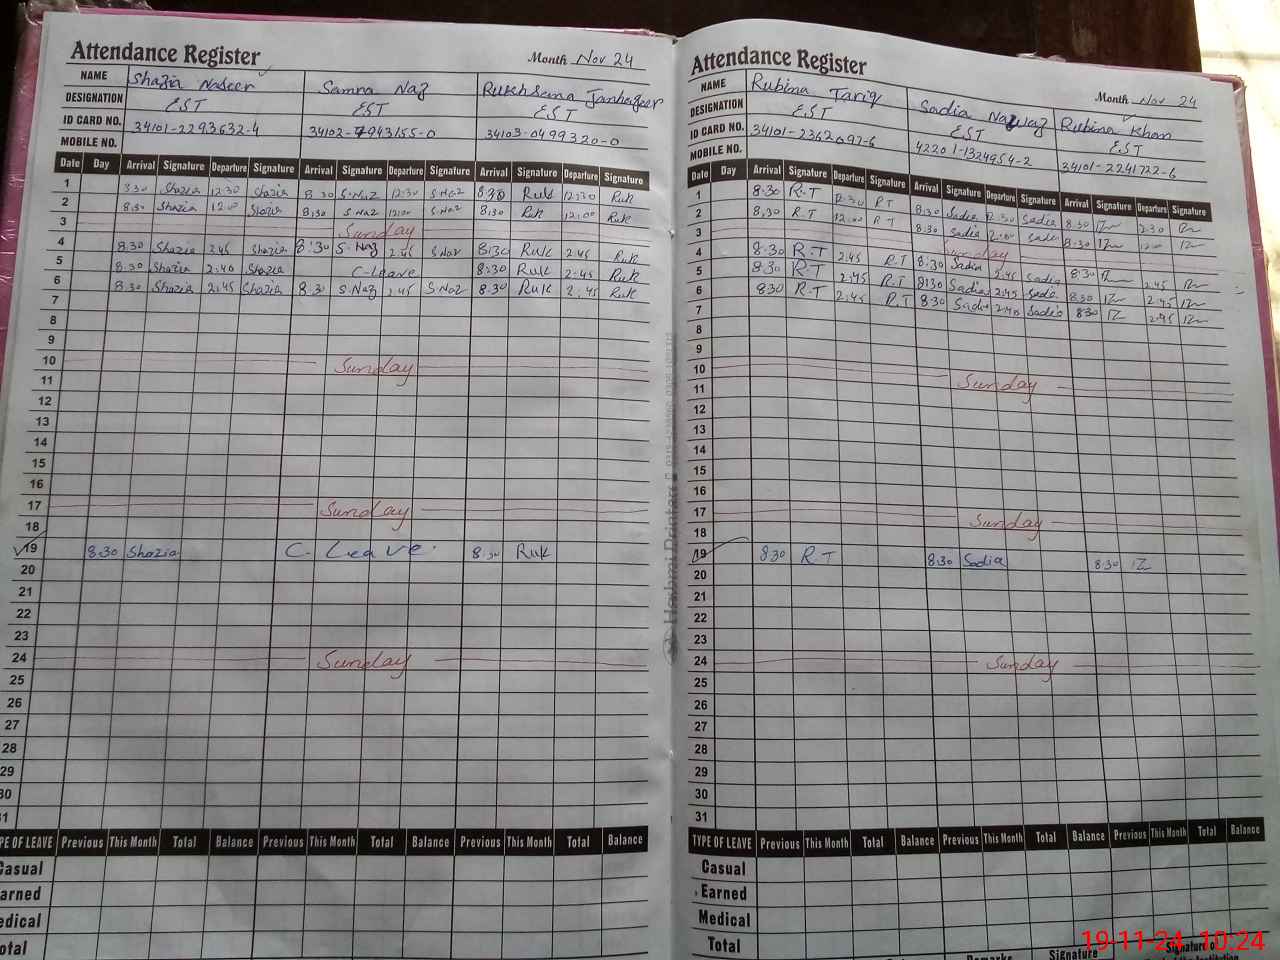 Attendance Register
Month Nov 24
NAME Shazia Naseer Samra Naz Rukhsana Jamhageer
DESIGNATION EST EST EST
ID CARD NO. 34101-2293632-4 34102-7943155-0 34103-0499320-0
MOBILE NO.
Date Day Arrival Signature Departure Signature Arrival Signature Departure Signature Arrival Signature Departure Signature
1 8:30 Shazia 12:30 Shazia 8:30 S.Naz 12:30 S.Naz 8:30 Ruk 12:30 Ruk
2 8:30 Shazia 12.00 Shazia 8:30 S.Naz 12:00 S.Naz 8:30 Ruk 12:00 Ruk
3 Sunday
4 8.30 Shazia 2.45 Shazia 8:30 S-Naz 2:45 S.Naz 8:30 Ruk 2.45 Ruk
5 8.30 Shazia 2:40 Shazia C-Leave 8:30 Ruk 2:45 Ruk
6 8.30 Shazia 2:45 Shazia 8.30 S.Naz 2:45 S.Naz 8.30 Ruk 2.45 Ruk
7
8
9
10 Sunday
11
12
13
14
15
16
17 Sunday
18
19 8:30 Shazia C. Leave. 8:30 Ruk
20
21
22
23
24 Sunday
25
26
27
28
29
30
31
TYPE OF LEAVE Previous This Month Total Balance Previous This Month Total Balance Previous This Month Total Balance
Casual
Earned
Medical
Total
Attendance Register
Month Nov 24
NAME Rubina Tariq Sadia Nawaz Rubina Khan
DESIGNATION EST EST EST
ID CARD NO. 34101-2362097-6 42201-1324954-2 34101-2241722-6
MOBILE NO.
Date Day Arrival Signature Departure Signature Arrival Signature Departure Signature Arrival Signature Departure Signature
1 8:30 R.T 12:30 R.T 8:30 Sadia 12:30 Sadia 8:30 12:30
2 8:30 R.T 12:00 R.T 8:30 Sadia 12:00 Sadia 8:30 12:00
3 Sunday
4 8:30 R.T 2:45 R.T 8:30 Sadia 2:45 Sadia 8:30 2:45
5 8:30 R.T 2:45 R.T 8:30 Sadia 2:45 Sadia 8:30 2:45
6 8:30 R.T 2:45 R.T 8:30 Sadia 2:45 Sadia 8:30 2:45
7
8
9
10
11 Sunday
12
13
14
15
16
17 Sunday
18
19 8:30 R.T 8:30 Sadia 8:30
20
21
22
23
24 Sunday
25
26
27
28
29
30
31
TYPE OF LEAVE Previous This Month Total Balance Previous This Month Total Balance Previous This Month Total Balance
Casual
Earned
Medical
Total
Remarks Signature Signature of
19-11-24 10:24